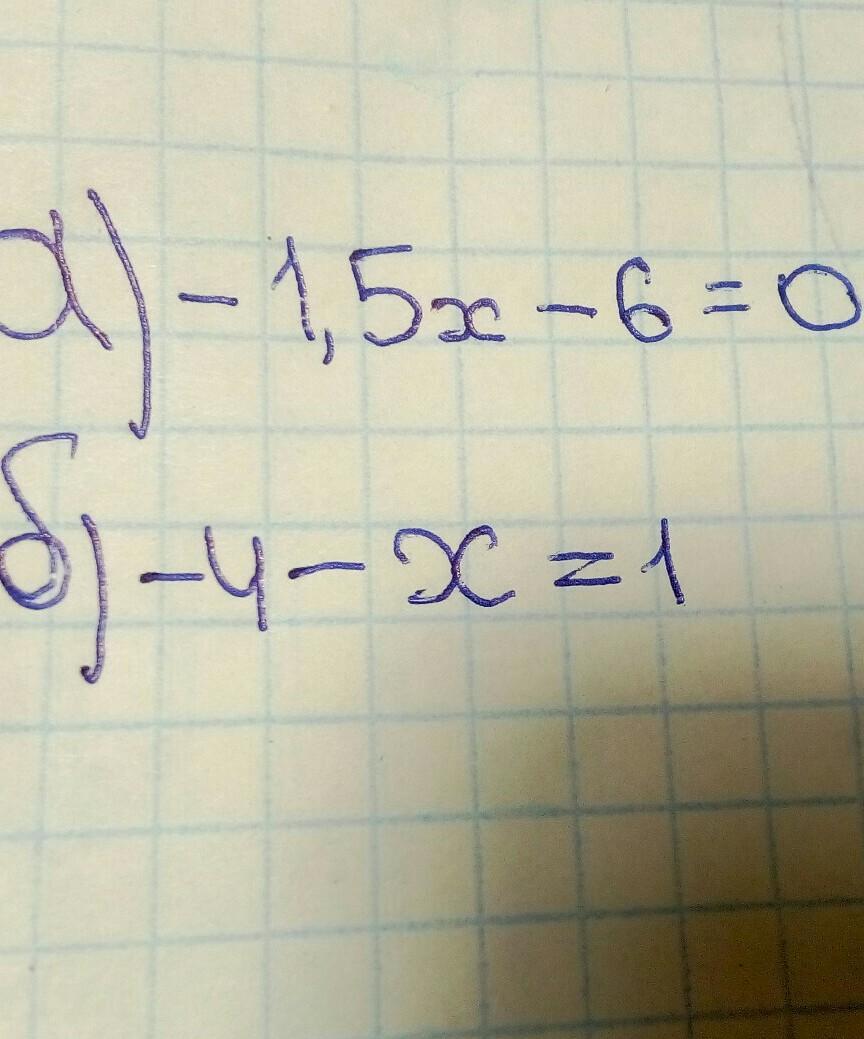 а) - 1,5x - 6 = 0
б) - 4 - x = 1